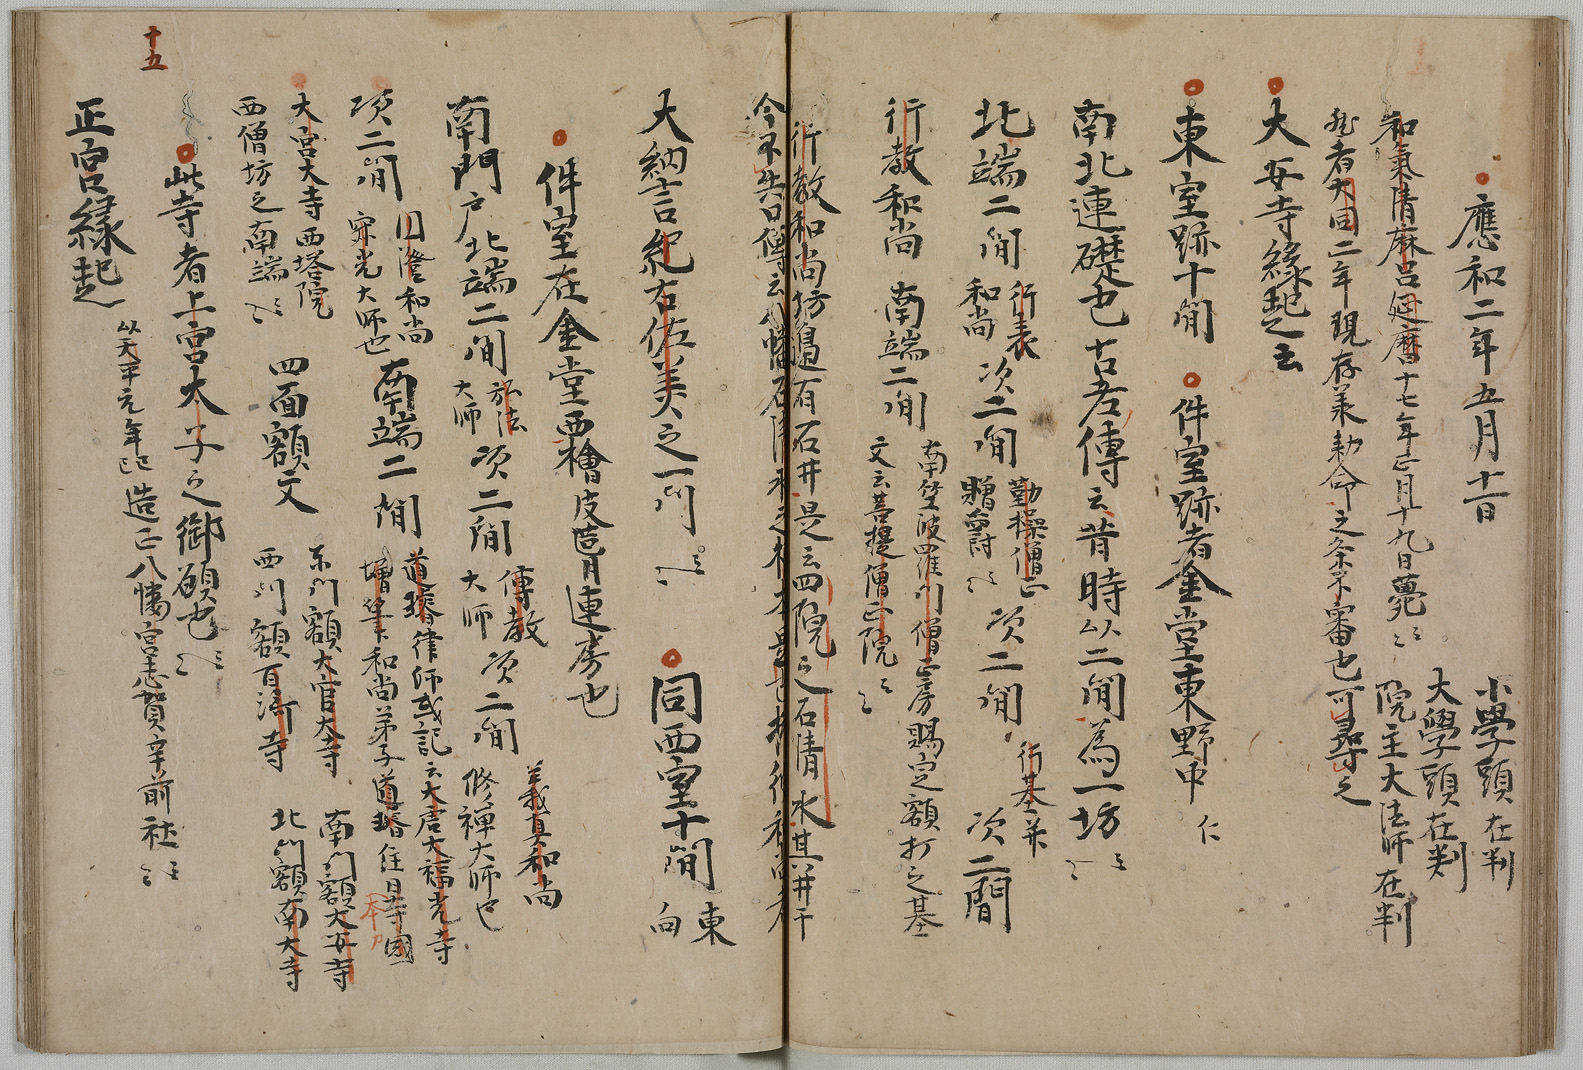 應和二年五月十一日
小學頭在判
大學頭在判
院主大法師在判
和氣清麻呂延曆十七年正月十九日薨云々
然者大同二年現存兼勅命之条不審也可尋之
大安寺緣起云
東室跡十間
件室跡者金堂東野中
仁
南北連礎也古老傳云昔時以二間為一坊云々
北端二間
行表
和尚
次二間
勤操僧正
贈爵云々
次二間
行基井
次二間
行教和尚
南端二間
南笠波羅門僧正房賜定額打之基
文云菩提僧正院云々
行教和尚坊邊有石井是云四院之石清水其井于
今不失口傳云八幡石清水之
大納言紀古佐美之一門云々
同西室十間
東
向
件室在金堂西檜皮造月連房也
南門戶北端二間
弘法
大師
次二間
傳教
大師
次二間
義真和尚
修禪大師也
次二間
円澄和尚
寂光大師也
南端二間
道璿律師或記云大唐大福光寺
增華和尚弟子道璿住日寺國
本乃
大宮大寺西塔院
西僧坊之南端云々
四面額文
東門額大官大寺
西門額百濟寺
南門額大安寺
北門額南大寺
此寺者上宮太子之御願也云々
以天平元年記造正八幡宮志賀辛前社云々
正宮緣起
十五